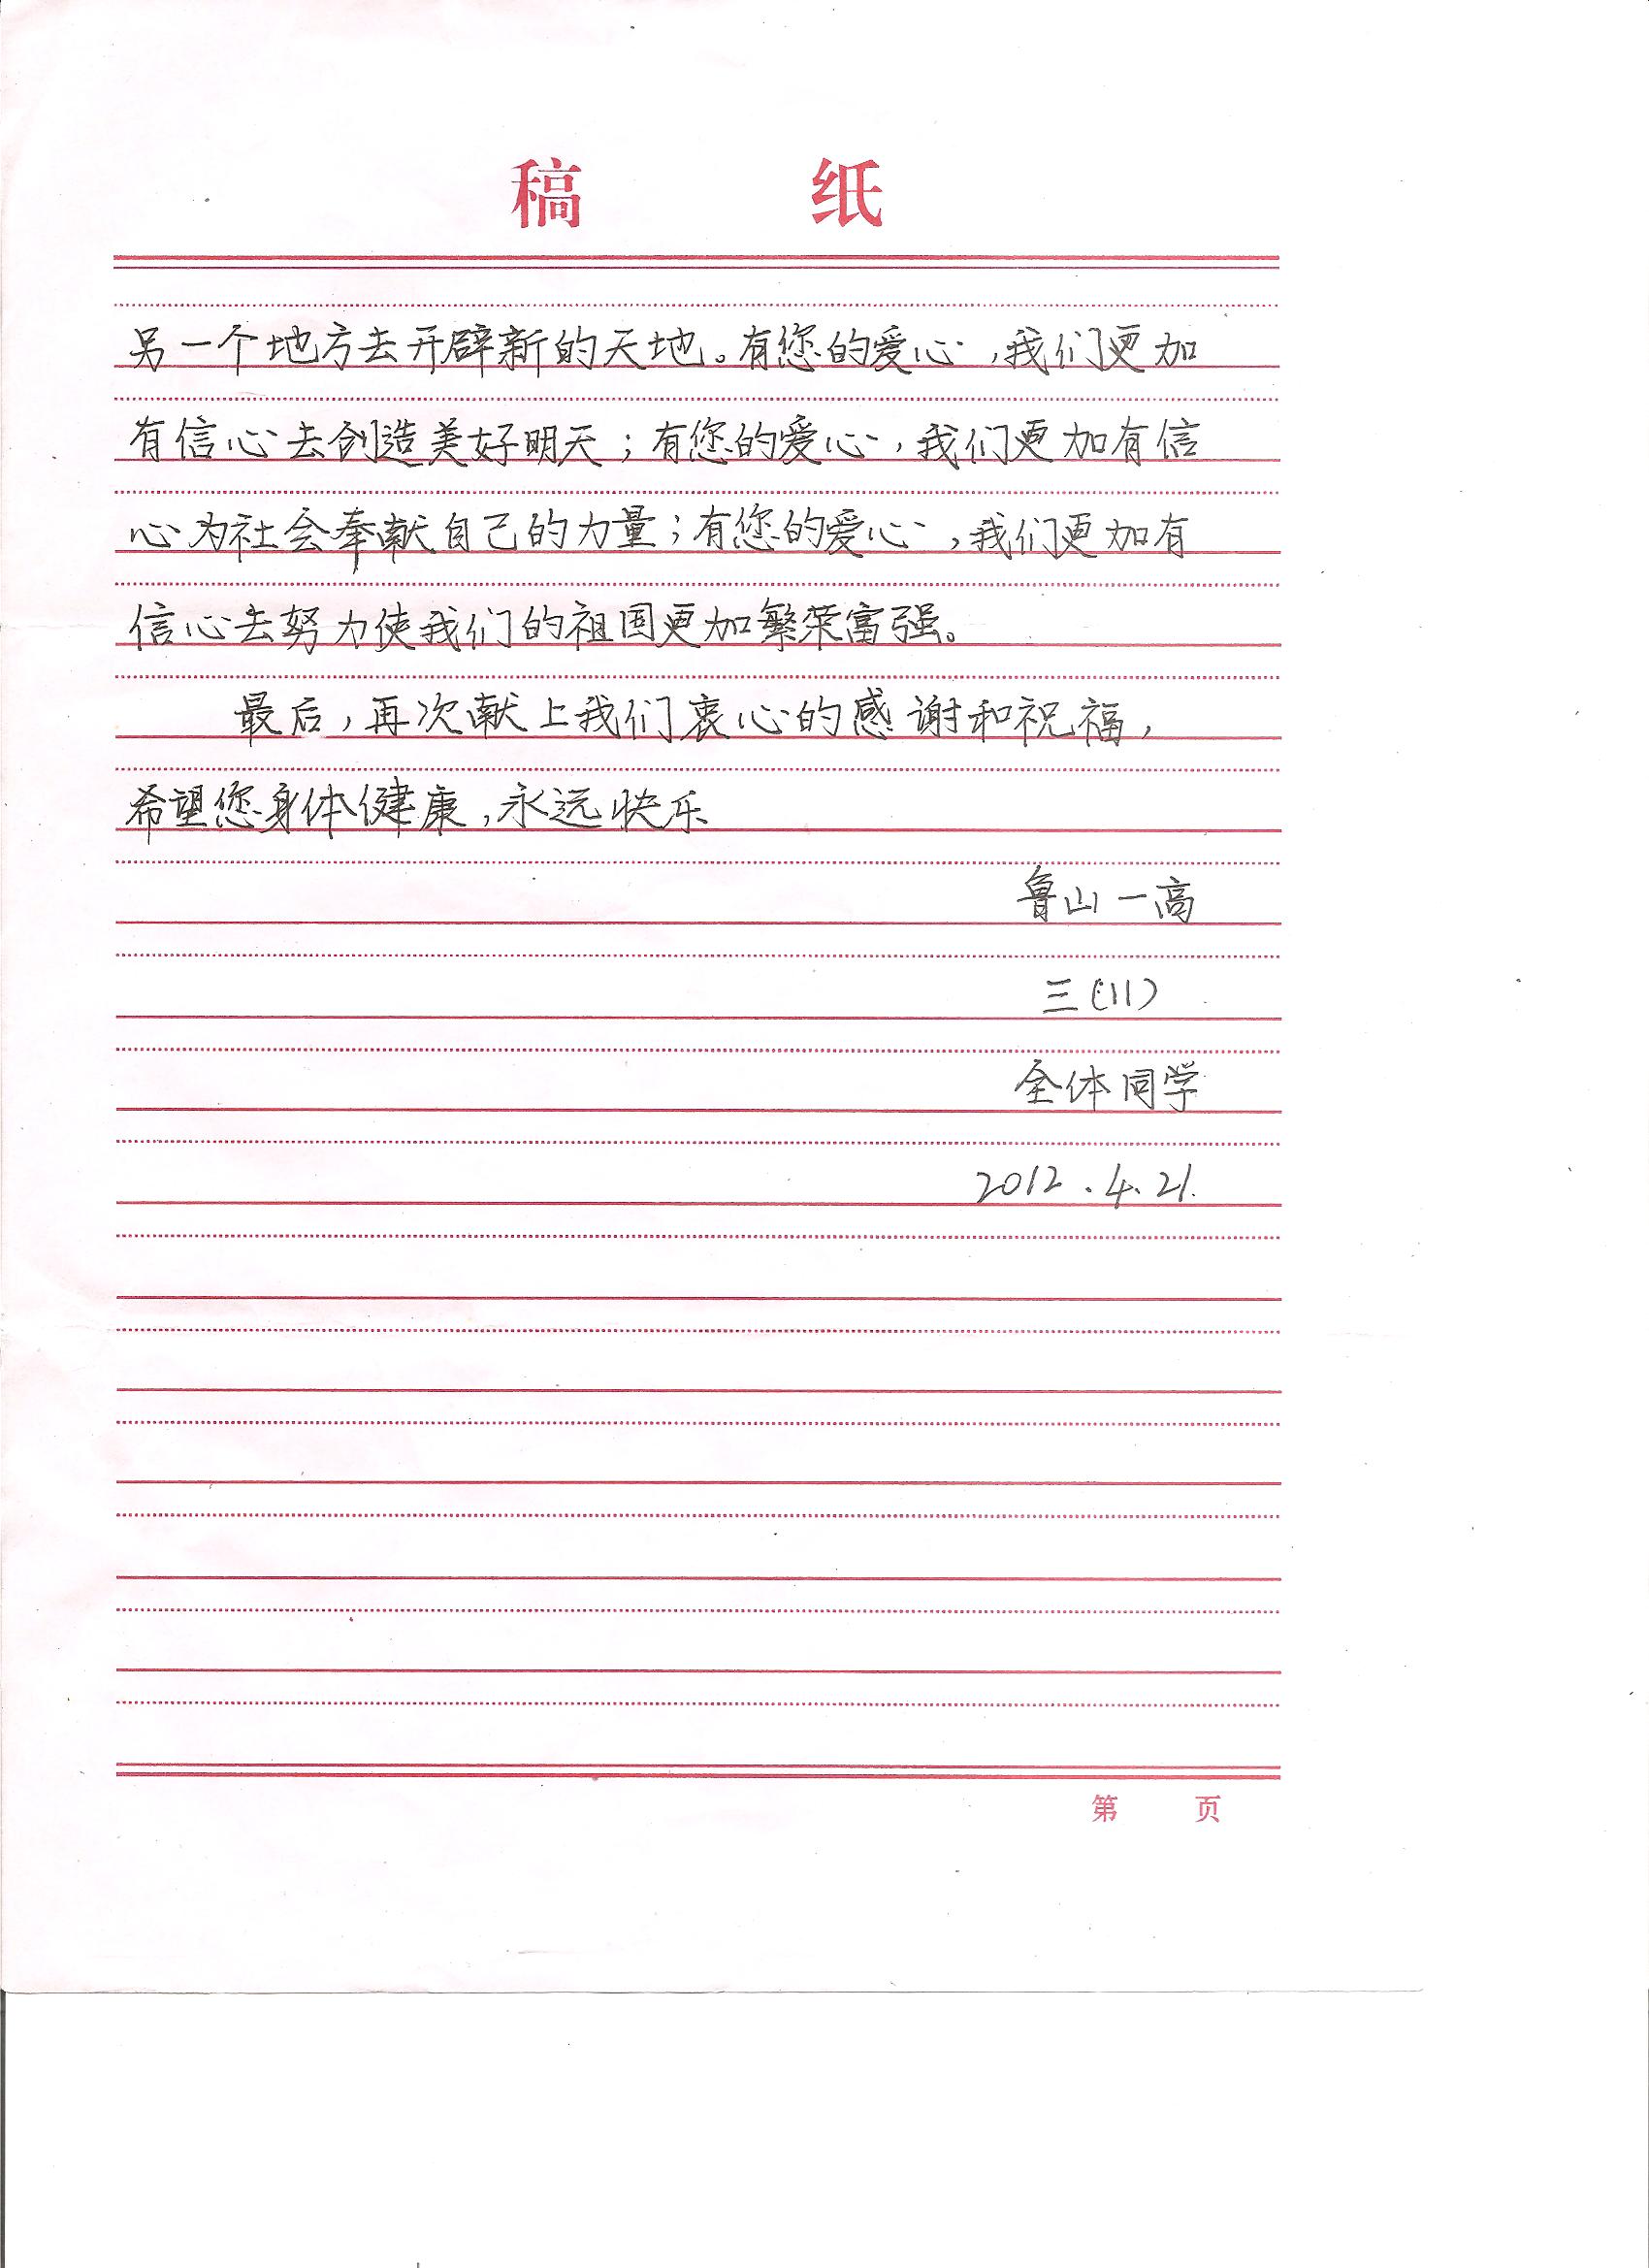 稿 纸
另一个地方去开辟新的天地。有您的爱心,我们更加
有信心去创造美好明天;有您的爱心,我们更加有信
心为社会奉献自己的力量;有您的爱心,我们更加有
信心去努力使我们的祖国更加繁荣富强。
最后,再次献上我们衷心的感谢和祝福,
希望您身体健康,永远快乐
鲁山一高
三(11)
全体同学
2012.4.21.
第 页